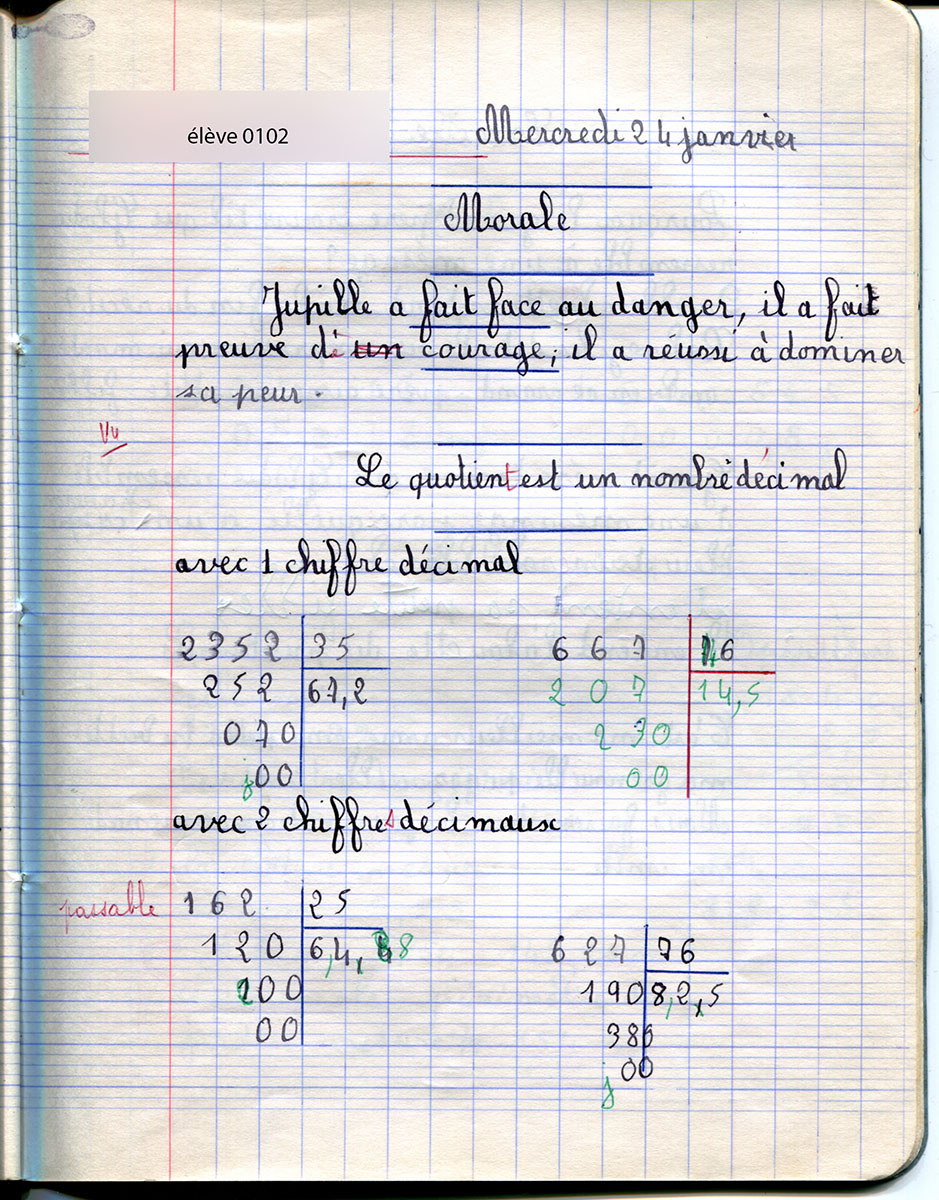 élève 0102
Mercredi 24 janvier
Morale
Jupille a fait face au danger, il a fait
preuve de un courage; il a réussi à dominer
sa peur.
Vu
Le quotient est un nombre décimal
avec 1 chiffre décimal
2352 35
252 67,2
070
j00
667 46
207 14,5
230
00
avec 2 chiffres décimaux
passable
162 25
120 6,48
200
00
627 76
190 8,25
380
00
j